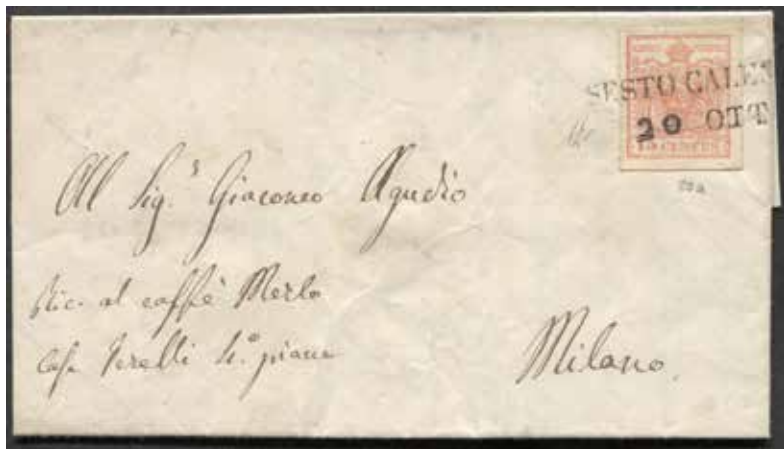 SESTO CALEN
20 OTT
Al Sig.r Giacomo Agudio
al caffè Merlo
Casa piano
Milano.